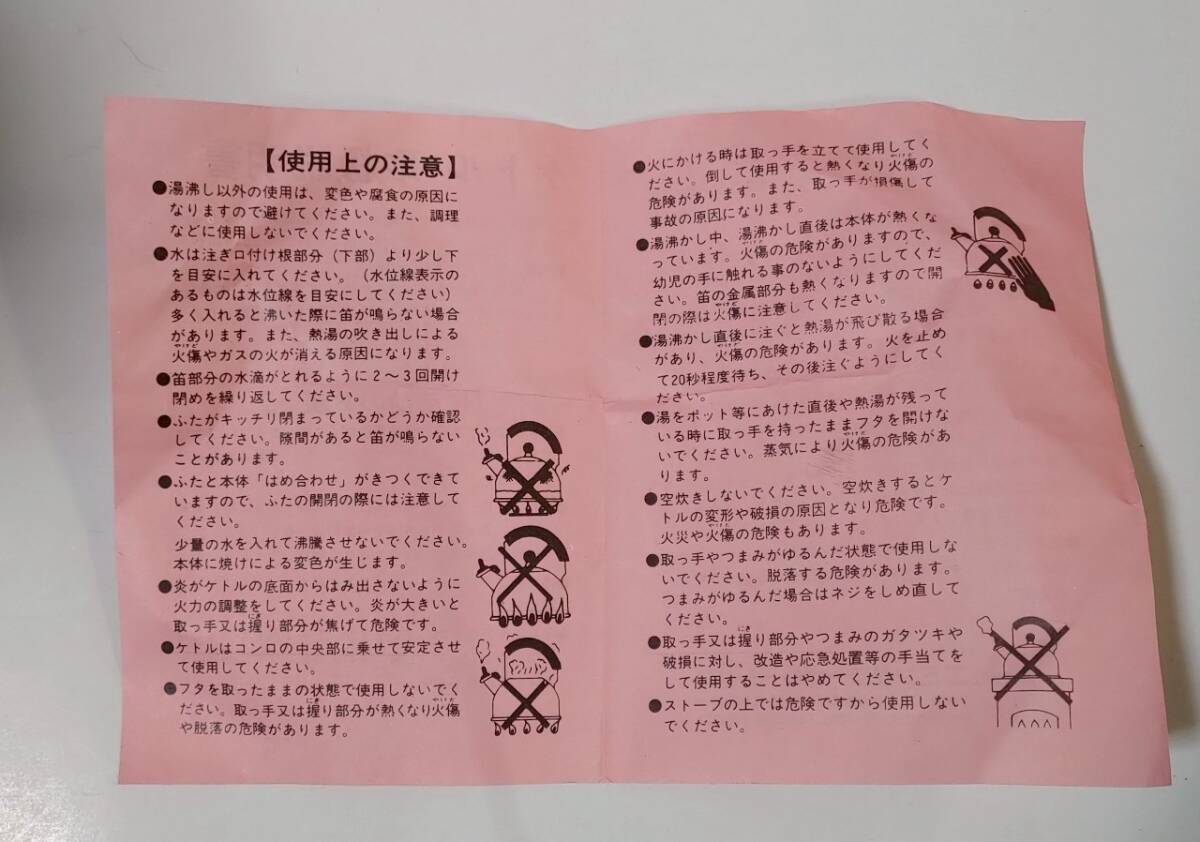 【使用上の注意】
●湯沸し以外の使用は、変色や腐食の原因に
なりますので避けてください。また、調理
などに使用しないでください。
●水は注ぎ口付け根部分（下部）より少し下
を目安に入れてください。（水位線表示の
あるものは水位線を目安にしてください）
多く入れると沸いた際に笛が鳴らない場合
があります。また、熱湯の吹き出しによる
火傷やガスの火が消える原因になります。
●笛部分の水滴がとれるように2～3回開け
閉めを繰り返してください。
●ふたがキッチリ閉まっているかどうか確認
してください。隙間があると笛が鳴らない
ことがあります。
●ふたと本体「はめ合わせ」がきつくできて
いますので、ふたの開閉の際には注意して
ください。
少量の水を入れて沸騰させないでください。
本体に焼けによる変色が生じます。
●炎がケトルの底面からはみ出さないように
火力の調整をしてください。炎が大きいと
取っ手又は握り部分が焦げて危険です。
●ケトルはコンロの中央部に乗せて安定させ
て使用してください。
●フタを取ったままの状態で使用しないでく
ださい。取っ手又は握り部分が熱くなり火傷
や脱落の危険があります。
●火にかける時は取っ手を立てて使用してく
ださい。倒して使用すると熱くなり火傷の
危険があります。また、取っ手が損傷して
事故の原因になります。
●湯沸かし中、湯沸かし直後は本体が熱くな
っています。火傷の危険がありますので、
幼児の手に触れる事のないようにしてくだ
さい。笛の金属部分も熱くなりますので開
閉の際は火傷に注意してください。
●湯沸かし直後に注ぐと熱湯が飛び散る場合
があり、火傷の危険があります。火を止め
て20秒程度待ち、その後注ぐようにしてく
ださい。
●湯をポット等にあけた直後や熱湯が残って
いる時に取っ手を持ったままフタを開けな
いでください。蒸気により火傷の危険があ
ります。
●空炊きしないでください。空炊きするとケ
トルの変形や破損の原因となり危険です。
火災や火傷の危険もあります。
●取っ手やつまみがゆるんだ状態で使用しな
いでください。脱落する危険があります。
つまみがゆるんだ場合はネジをしめ直して
ください。
●取っ手又は握り部分やつまみのガタツキや
破損に対し、改造や応急処置等の手当てを
して使用することはやめてください。
●ストーブの上では危険ですから使用しない
でください。